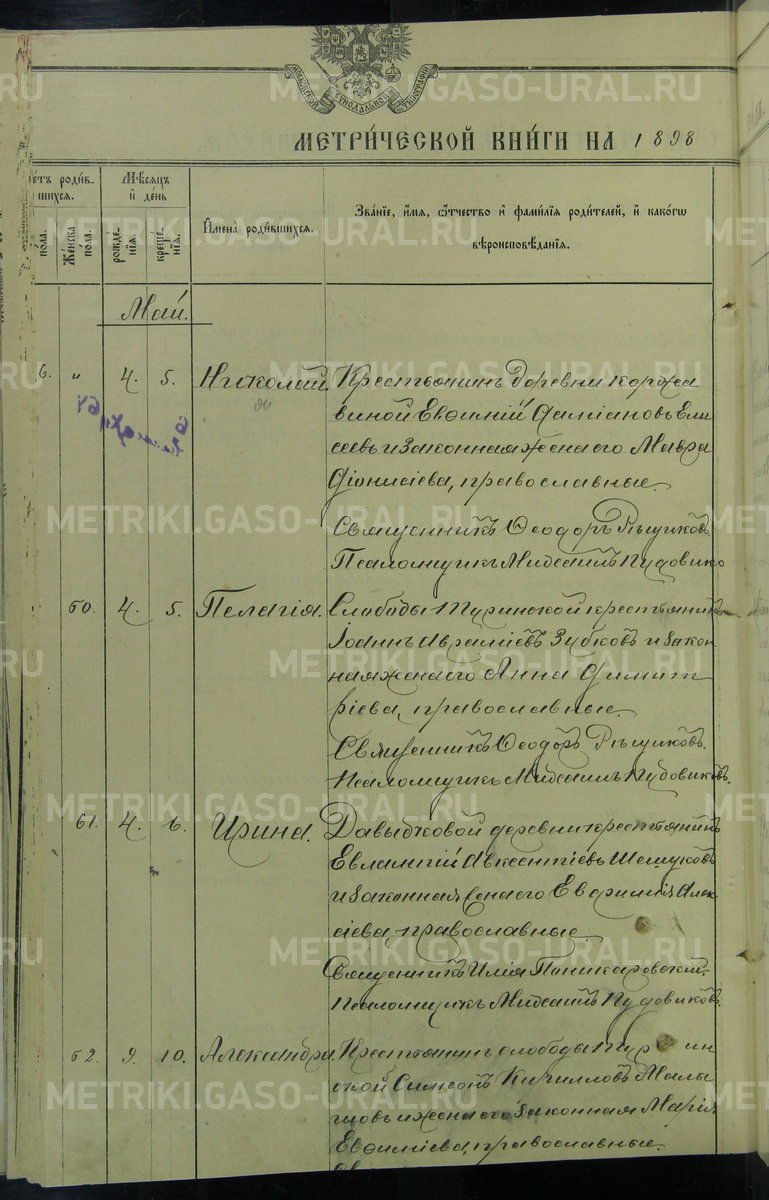 МОСКОВСКОЙ СѴНОДАЛЬНОЙ ТИПОГРАФІИ
МЕТРИ́ЧЕСКОЙ КНИ́ГИ НА 1898
Счетъ роди́в-
шихся.
Мѣсяцъ
и҆ де́нь
пола.
Женска
пола.
рожде́-
нїя.
креще́-
нїя.
И҆мена̀ роди́вшихся.
Зва́нїе, и҆́мя, ѻ҆́тчество и҆ фами́лїя роди́телей, и҆ како́гѡ
вѣроисповѣ́данїя.
Май.
6. " 4. 5. Николай. Крестьянинъ деревни Коржа
виной Евѳимій Даміановъ Ели
сеевъ и законная жена его Мавра
Діонисіева, православные.
Священникъ Ѳеодоръ
Псаломщикъ Мисаилъ Пудовико
60. 4. 5. Пелагія. Слободы Туринской крестьянинъ
Іоаннъ Авраміевъ Зубковъ и закон
ная жена его Анна Димит
ріева, православные.
Священникъ Ѳеодоръ
Псаломщикъ Мисаилъ Пудовиковъ.
61. 4. 6. Ирина. Давыдковой деревни крестьянинъ
Евлампій Авксентіевъ Шешуковъ
и законная жена его Евфимія Алек
сіева, православные.
Священникъ Илія Паникаровскій.
Псаломщикъ Мисаилъ Пудовиковъ.
62. 9. 10. Александра. Крестьянинъ слободы Турин
ской Симеонъ Кирилловъ Мала
ховъ и жена его законная Марія
Евѳиміева, православные.
METRIKI.GASO-URAL.RU